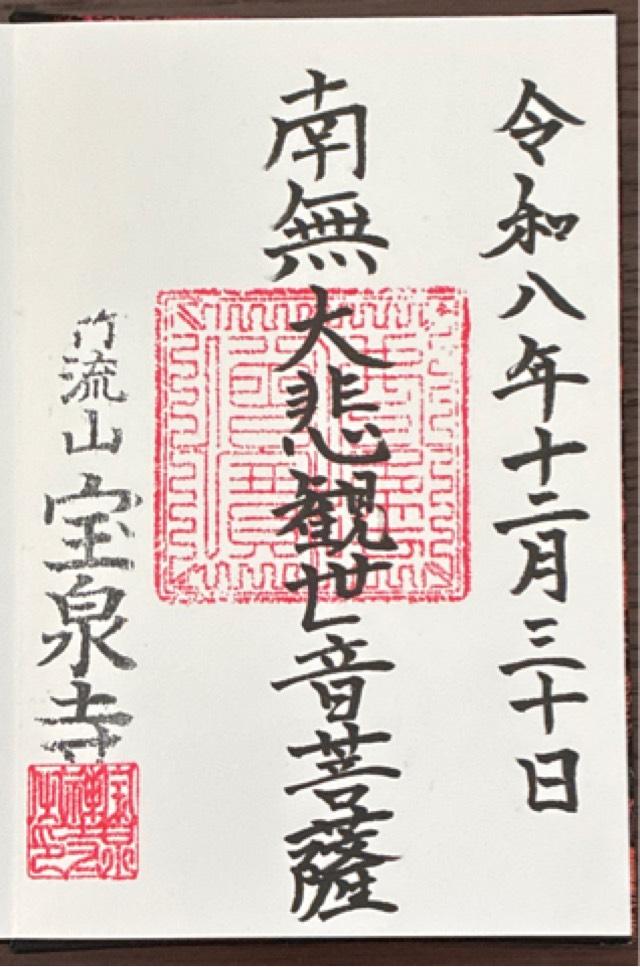 令和八年十二月三十日
南無大悲観世音菩薩
竹流山宝泉寺